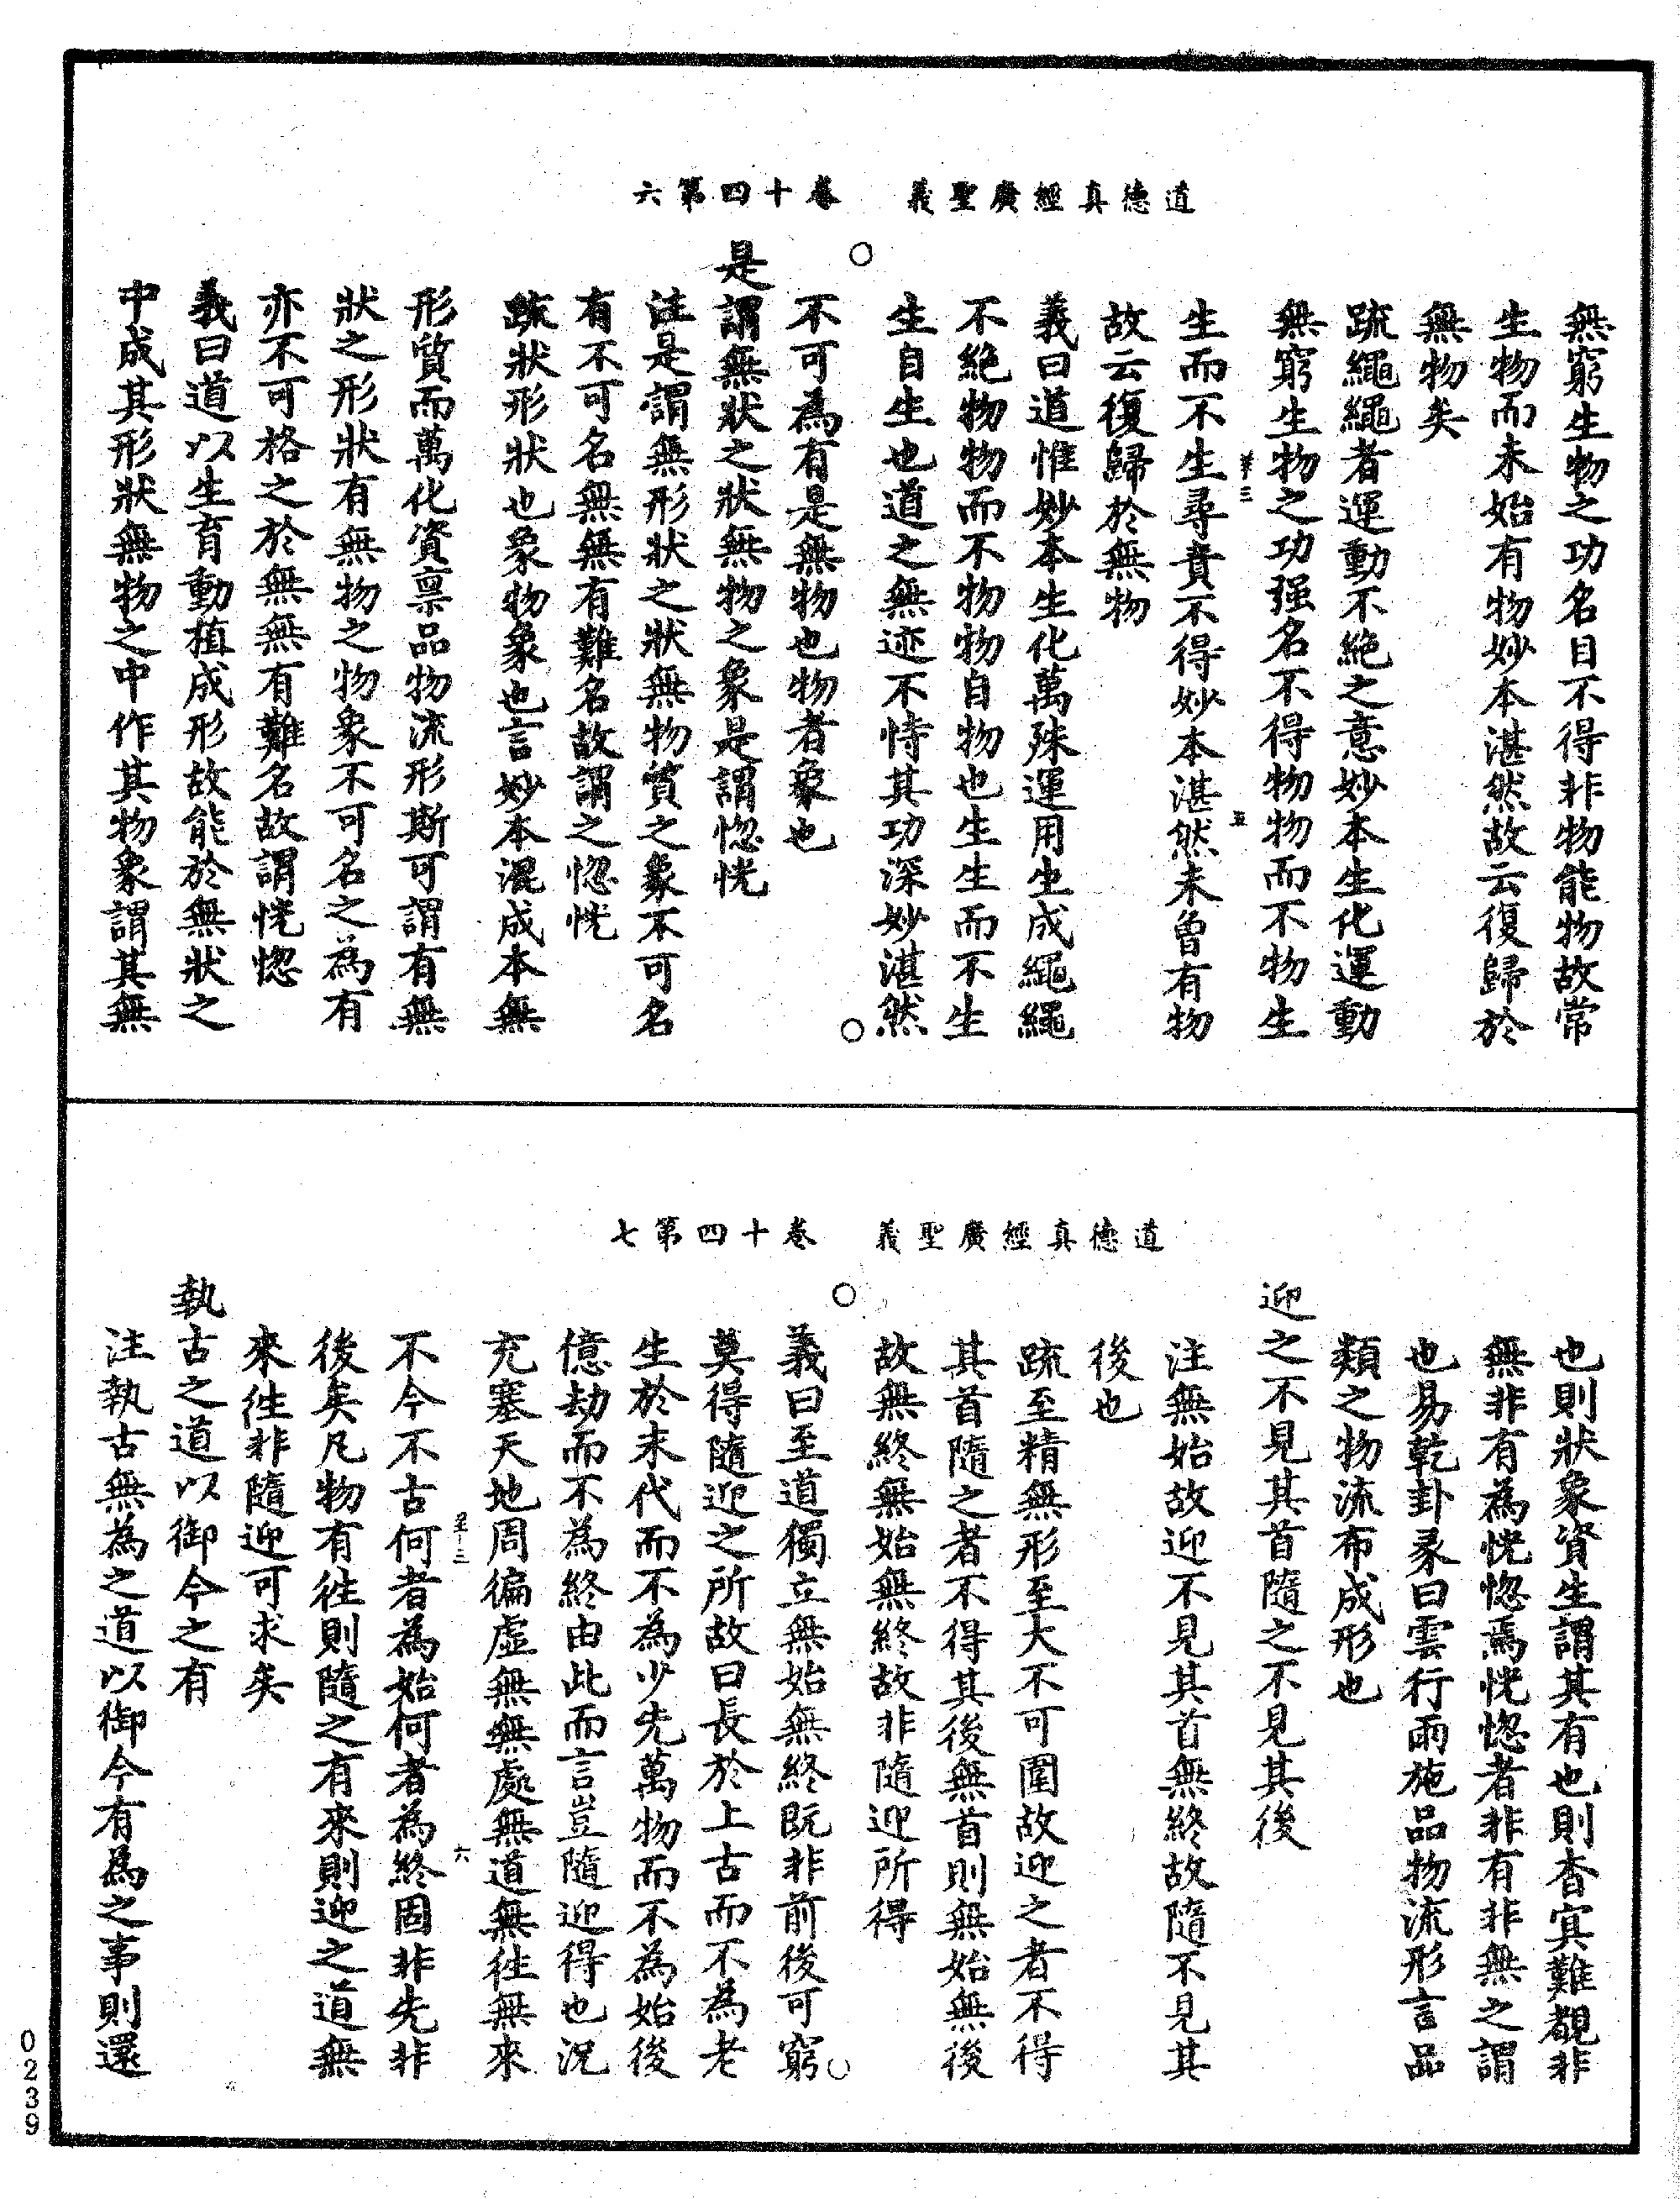 道德真經廣聖義　卷十四第六
無窮生物之功名目不得非物能物故常
生物而未始有物妙本湛然故云復歸於
無物矣
疏繩繩者運動不絕之意妙本生化運動
無窮生物之功强名不得物物而不物生
生而不生尋責不得妙本湛然未曾有物
故云復歸於無物
義曰道惟妙本生化萬殊運用生成繩繩
不絕物物而不物物自物也生生而不生
生自生也道之無迹不恃其功深妙湛然
○
不可為有是無物也物者象也
是謂無狀之狀無物之象是謂惚恍
注是謂無形狀之狀無物質之象不可名
有不可名無無有難名故謂之惚恍
疏狀形狀也象物象也言妙本混成本無
形質而萬化資禀品物流形斯可謂有無
狀之形狀有無物之物象不可名之為有
亦不可格之於無無有難名故謂恍惚
義曰道以生育動植成形故能於無狀之
中成其形狀無物之中作其物象謂其無
道德真經廣聖義　卷十四第七
也則狀象資生謂其有也則杳冥難覩非
無非有為恍惚焉恍惚者非有非無之謂
也易乾卦彖曰雲行雨施品物流形言品
類之物流布成形也
迎之不見其首隨之不見其後
注無始故迎不見其首無終故隨不見其
後也
疏至精無形至大不可圍故迎之者不得
其首隨之者不得其後無首則無始無後
故無終無始無終故非隨迎所得
○
義曰至道獨立無始無終既非前後可窮
莫得隨迎之所故曰長於上古而不為老
生於末代而不為少先萬物而不為始後
億劫而不為終由此而言豈隨迎得也況
充塞天地周徧虛無無處無道無往無來
不今不古何者為始何者為終固非先非
後矣凡物有往則隨之有來則迎之道無
來往非隨迎可求矣
執古之道以御今之有
注執古無為之道以御今有為之事則還
0239